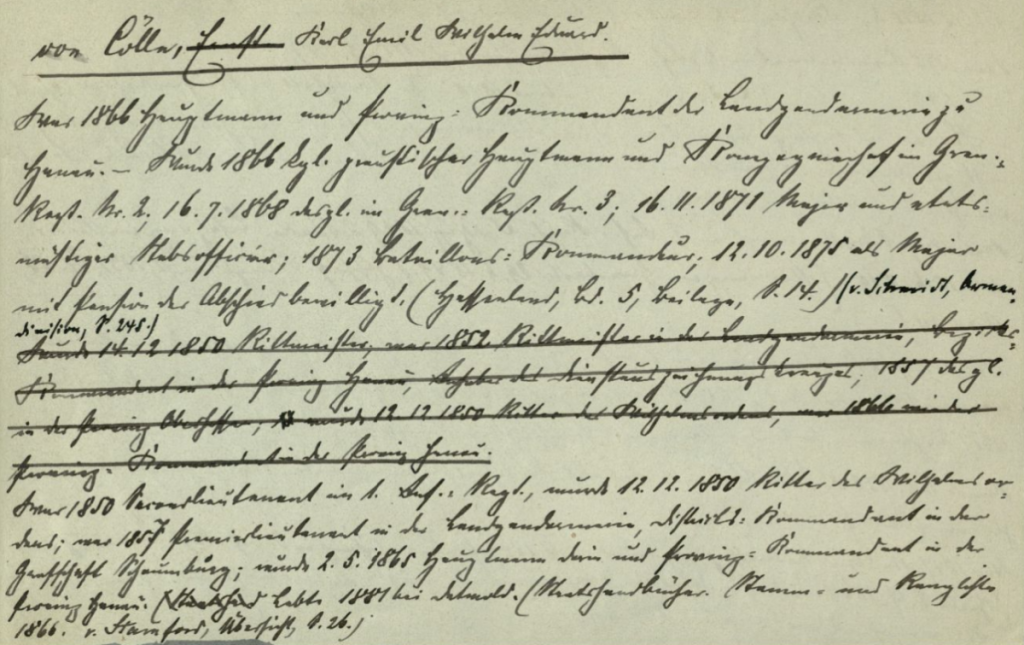 von Cölln, Ernst Karl Emil Wilhelm Eduard.
War 1866 Hauptmann und Provinz-Kommandant der Landgendarmerie zu
Hanau. – Wurde 1866 kgl. preußischer Hauptmann und Kompagniechef im Gren.-
Regt. Nr. 2, 16.7.1868 desgl. im Gren.-Regt. Nr. 3; 16.11.1871 Major und etats-
mäßiger Stabsoffizier; 1873 Bataillons-Kommandeur, 12.10.1875 als Major
mit Pension der Abschied bewilligt. (Hessenland, Bd. 5, Beilage, S. 14.) (v. Schmidt, Armee-
division, S. 245.)
Wurde 14.12.1850 Rittmeister, war 1852 Rittmeister in der Landgendarmerie, Bezirks-
Kommandant in der Provinz Hanau, Inhaber des Dienstauszeichnungskreuzes; 1857 desgl.
in der Provinz Oberhessen; wurde 12.12.1850 Ritter des Wilhelmsordens, war 1866 wieder
Provinz-Kommandant in der Provinz Hanau.
War 1850 Secondlieutenant im 1. Inf.-Regt., wurde 12.12.1850 Ritter des Wilhelmsor-
dens; war 1857 Premierlieutenant in der Landgendarmerie, Distrikts-Kommandant in der
Grafschaft Schaumburg; wurde 2.5.1865 Hauptmann darin und Provinz-Kommandant in der
Provinz Hanau. Lebte 1881 bei Detmold. (Staatshandbücher. Stamm- und Rangliste
1866. v. Stamford, Übersicht, S. 26.)